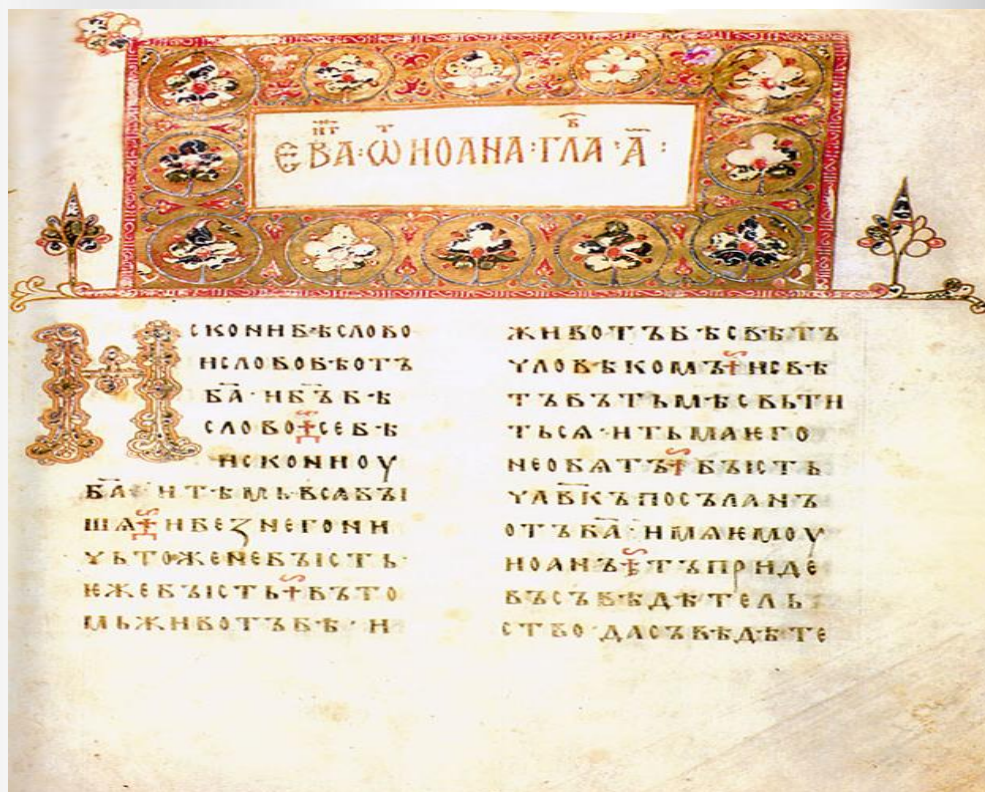 ЕВА҃·Ѡ҃ИОАНА·ГЛА·А҃:
ИСКОНИБѢСЛОВО
ИСЛОВОБѢОТЪ
БА҃·ИБ҃ЪБѢ
СЛОВО·СЕБѢ
ИСКОНИОУ
БА҃·ИТѢМЬВСѦБꙐ
ШѦ·ИБЕЗНЕГОНИ
ЧЬТОЖЕНЕБꙐСТЬ·
ѤЖЕБꙐСТЬ·ВЪТО
МЬЖИВОТЪБѢ·И
ЖИВОТЪБѢСВѢТЪ
ЧЛОВѢКОМЪ·ИСВѢ
ТЪВЪТЬМѢСВЬТИ
ТЬСѦ·ИТЬМАѤГО
НЕОБѦТЪ·БꙐСТЬ
ЧЛВ҃КЪПОСЪЛАНЪ
ОТЪБА҃·ИМѦѤМОУ
ИОАНЪ·ТЪПРИДЕ
ВЪСЪВѢДѢТЕЛЬ
СТВО·ДАСЪВѢДѢТЕ